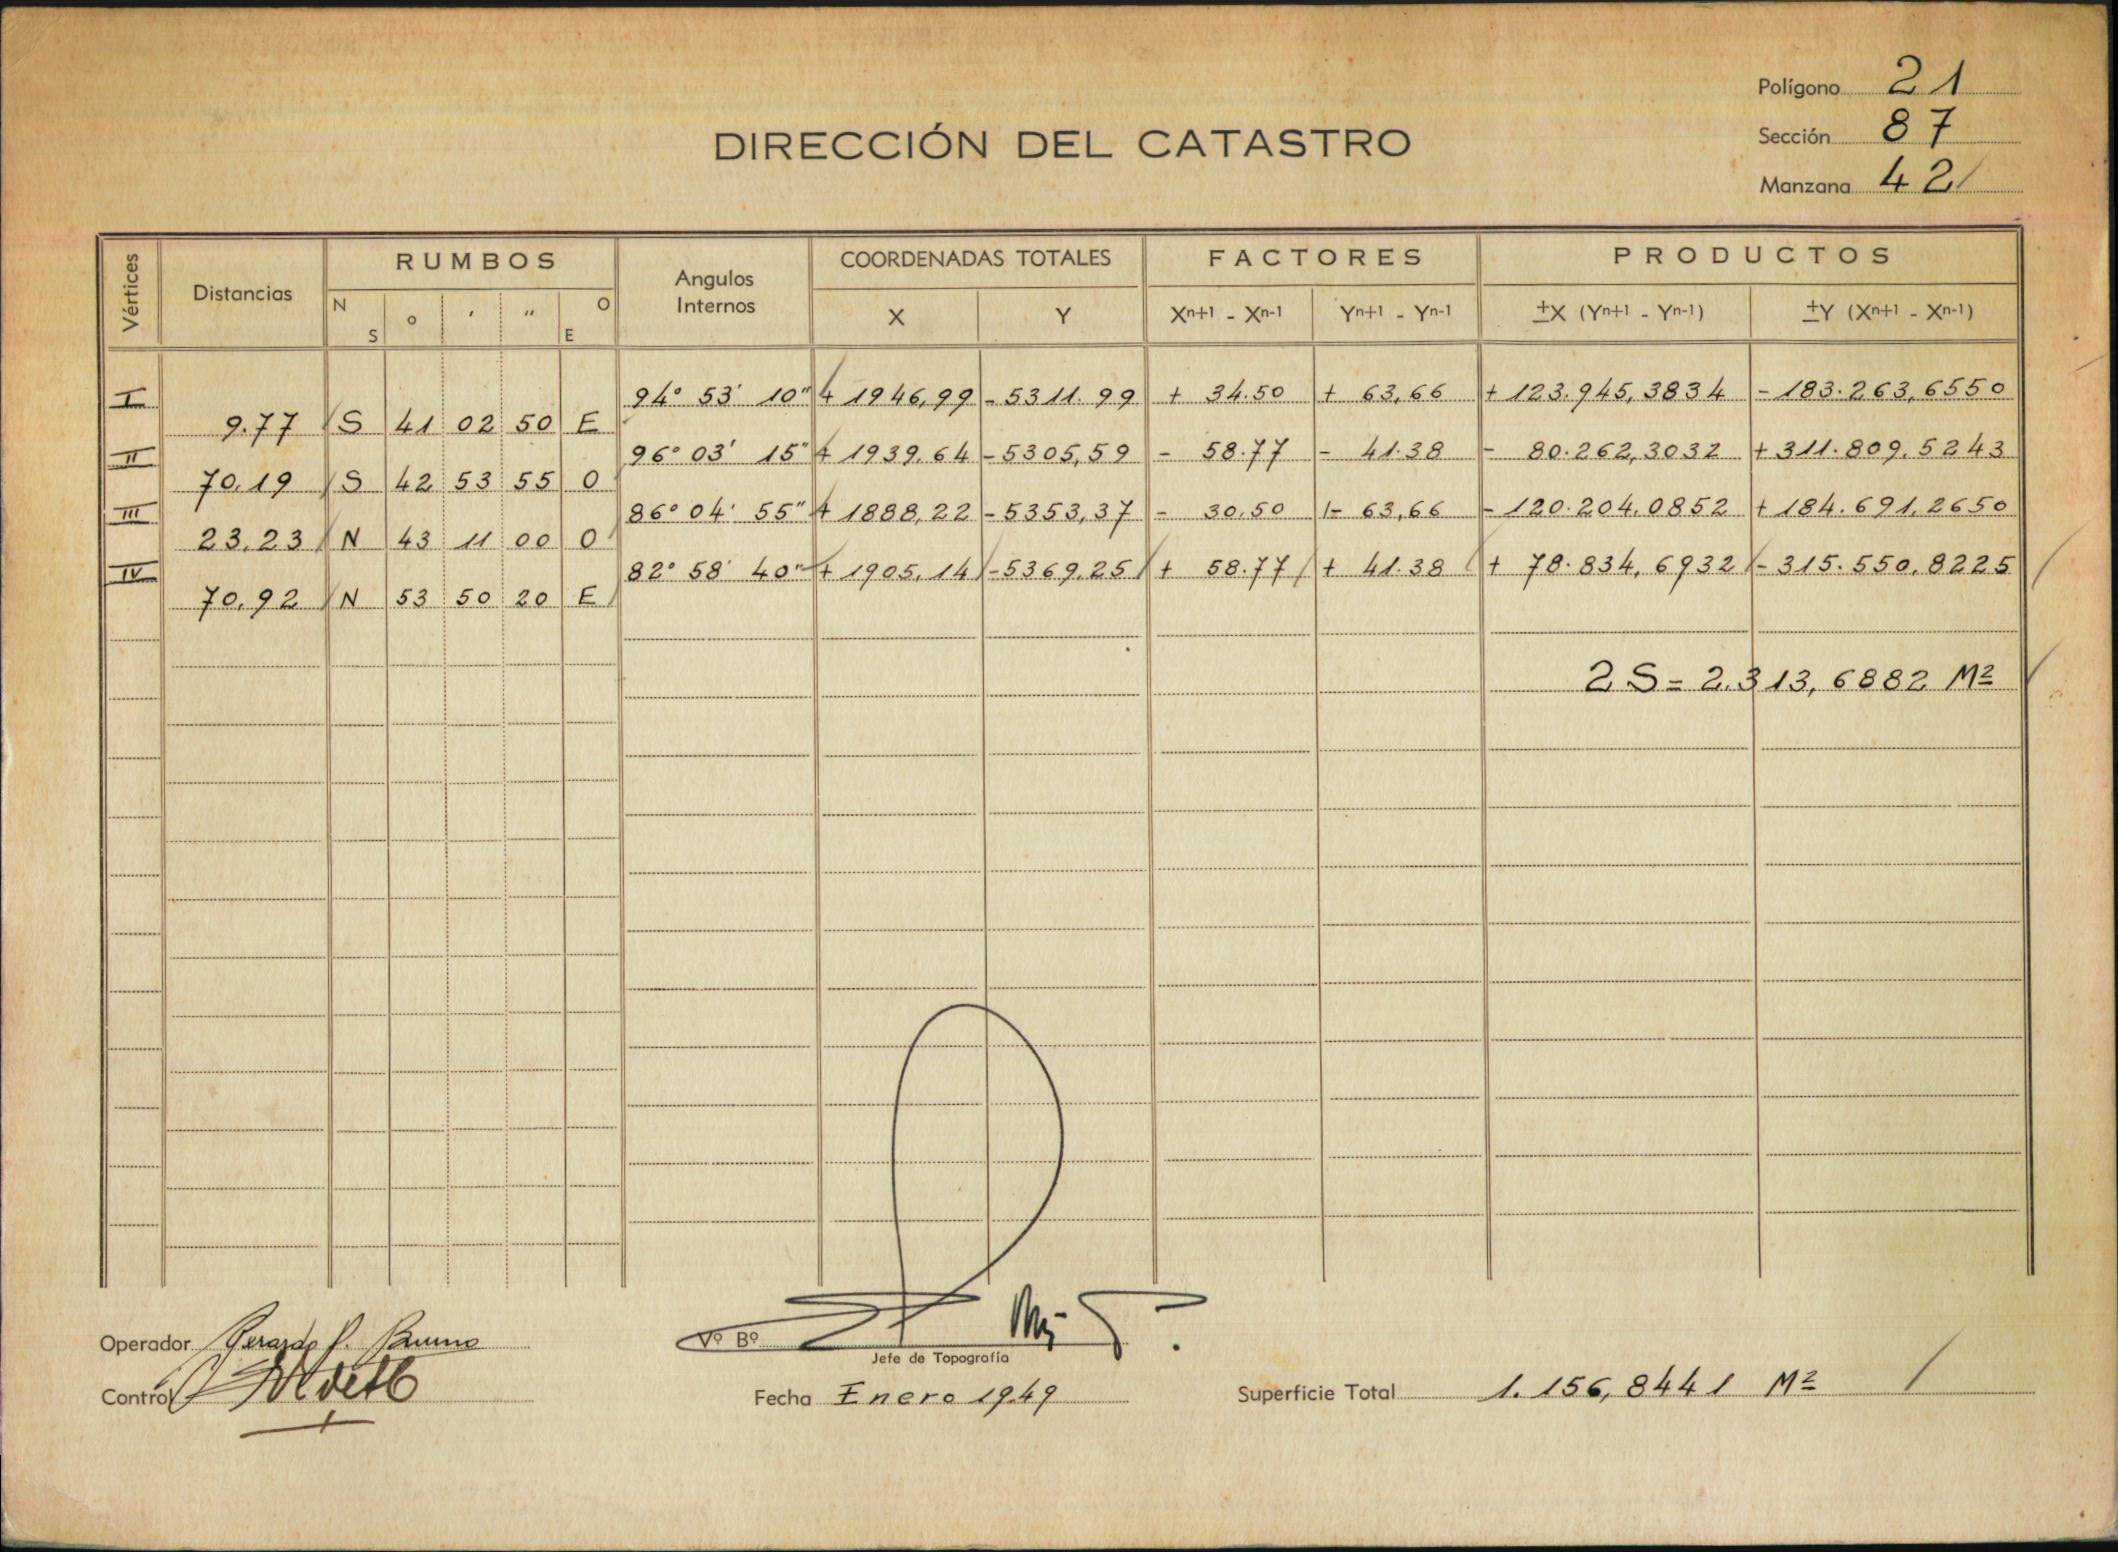 Polígono 21
Sección 87
Manzana 42
DIRECCIÓN DEL CATASTRO
Vértices Distancias RUMBOS Angulos Internos COORDENADAS TOTALES FACTORES PRODUCTOS
N S o ′ ″ O E X Y Xn+1 - Xn-1 Yn+1 - Yn-1 ±X (Yn+1 - Yn-1) ±Y (Xn+1 - Xn-1)
I 94° 53' 10" + 1946,99 - 5311.99 + 34.50 + 63,66 + 123.945,3834 - 183.263,6550
9.77 S 41 02 50 E
II 96° 03' 15" + 1939.64 - 5305,59 - 58.77 - 41.38 - 80.262,3032 + 311.809,5243
70.19 S 42 53 55 O
III 86° 04' 55" + 1888,22 - 5353,37 - 30.50 - 63,66 - 120.204.0852 + 184.691,2650
23.23 N 43 11 00 O
IV 82° 58' 40" + 1905,14 - 5369,25 + 58.77 + 41.38 + 78.834,6932 - 315.550,8225
70,92 N 53 50 20 E
2S = 2.313,6882 M²
Operador Gerardo P. Bruno
Vº Bº
Jefe de Topografía
Control
Fecha Enero 1949
Superficie Total 1.156,8441 M²